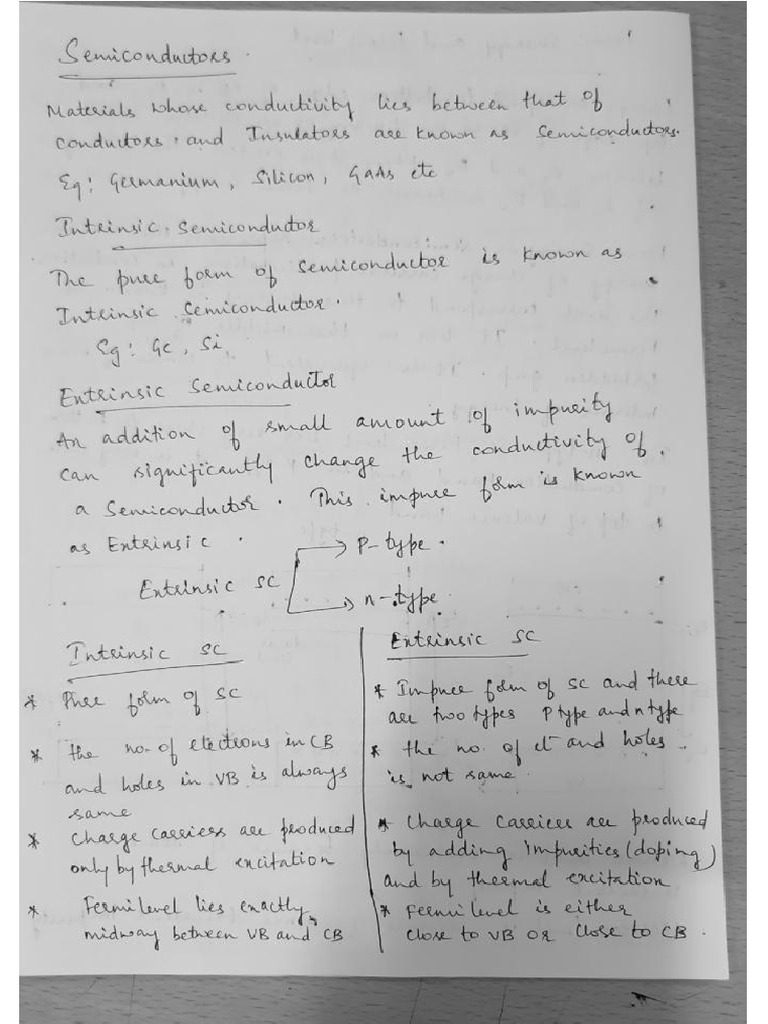 Semiconductors.
Materials whose conductivity lies between that of
conductors, and Insulators are known as Semiconductors.
Eg: Germanium, Silicon, GaAs etc
Intrinsic Semiconductor
The pure form of semiconductor is known as
Intrinsic Semiconductor.
Eg: Ge, Si
Extrinsic Semiconductor
An addition of small amount of impurity
can significantly change the conductivity of
a Semiconductor. This impure form is known
as Extrinsic.
P-type.
Extrinsic SC
n-type
Intrinsic SC
* Pure form of SC
* the no. of electrons in CB
and holes in VB is always
same
* Charge carriers are produced
only by thermal excitation
* Fermi level lies exactly
midway between VB and CB
Extrinsic SC
* Impure form of SC and there
are two types P type and n type
* the no. of e⁻ and holes
is not same.
* Charge Carriers are produced
by adding impurities (doping)
and by thermal excitation
* Fermi level is either
close to VB or close to CB.